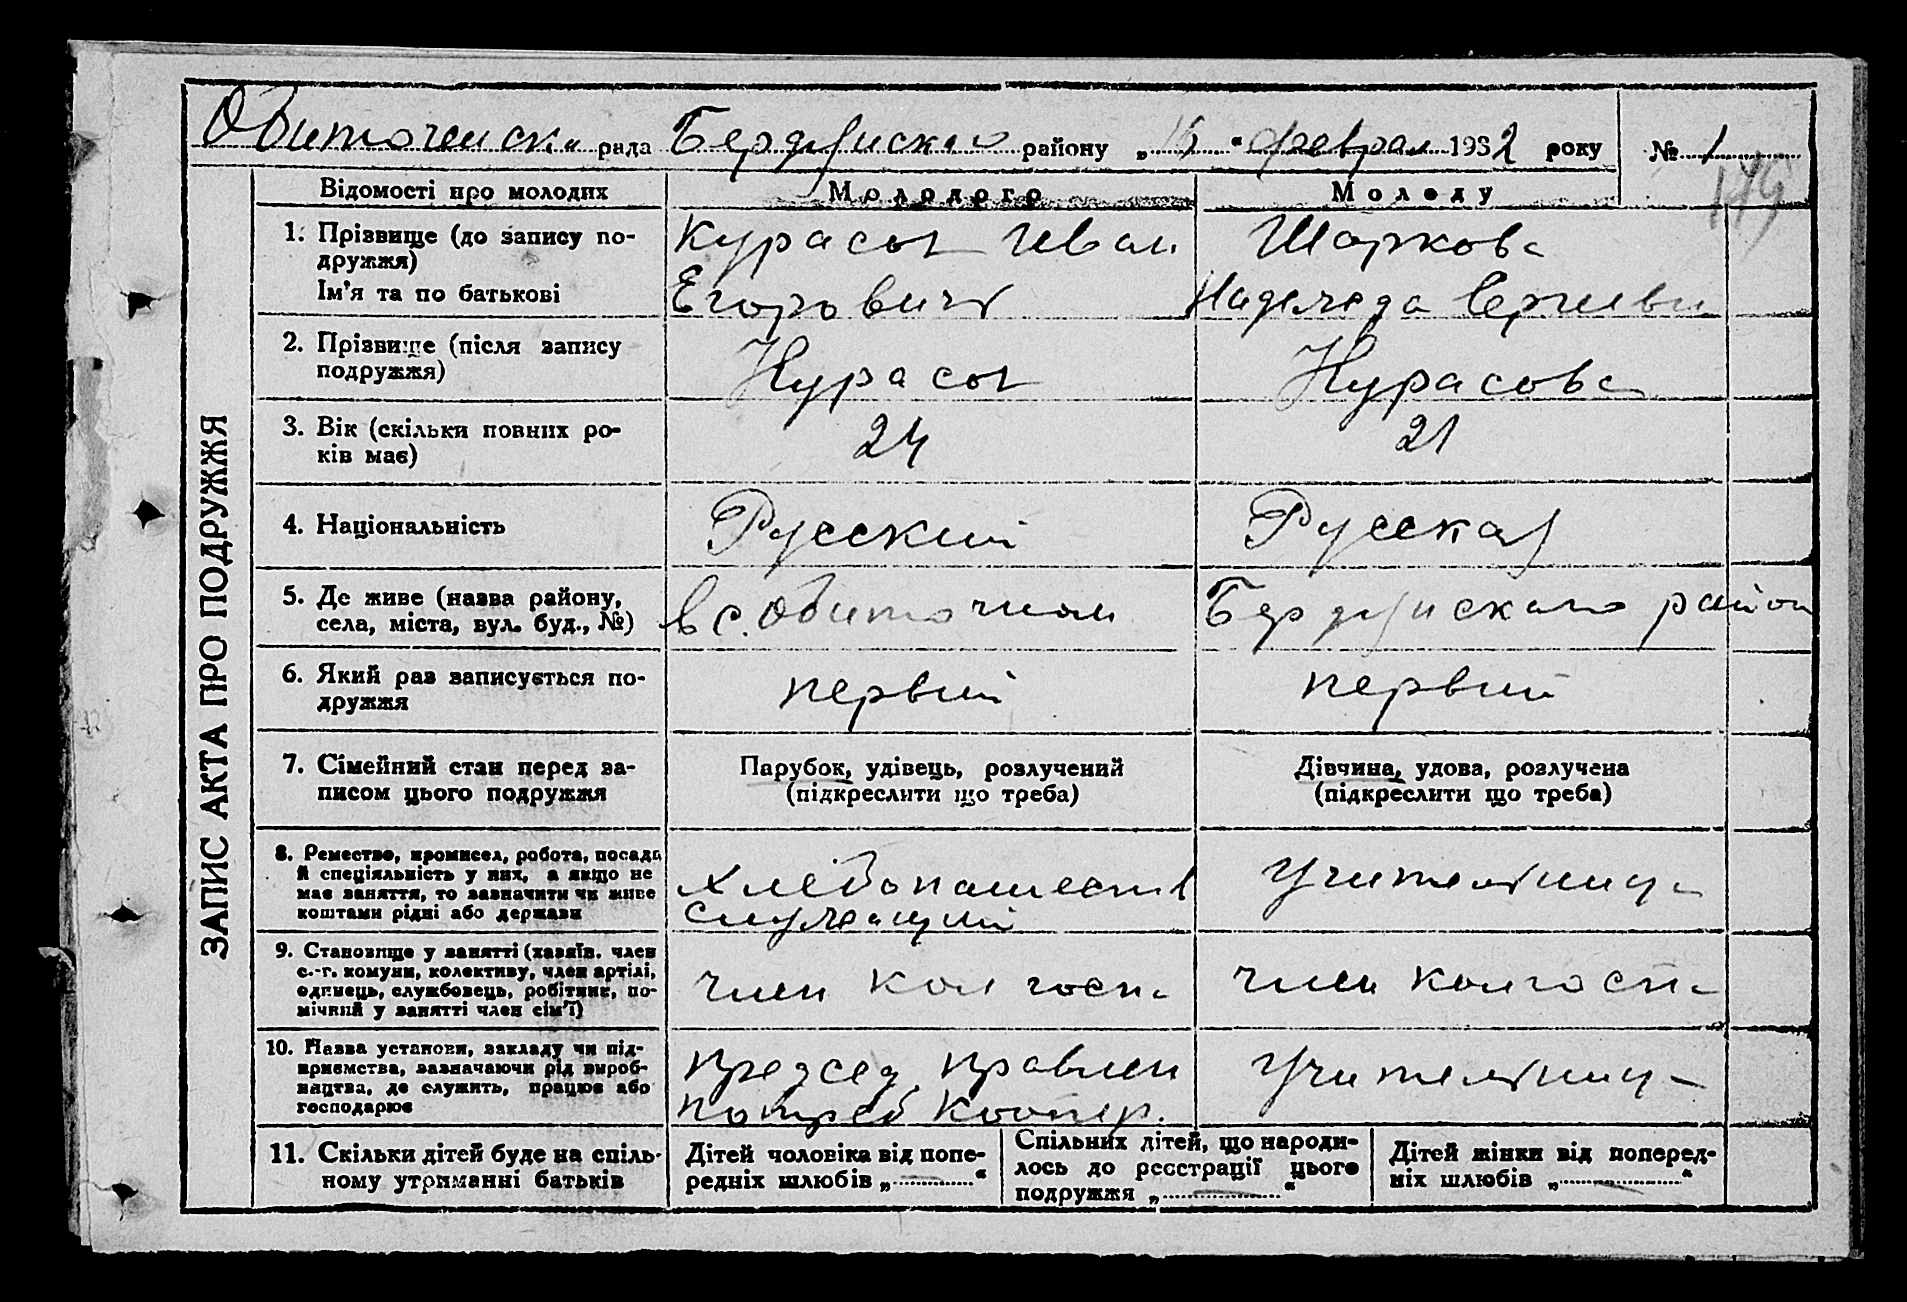 Обиточенск. рада Бердянского району „15“ феврал 1932 року № 1
179
ЗАПИС АКТА ПРО ПОДРУЖЖЯ
Відомості про молодих Молодого Молоду
1. Прізвище (до запису по-
дружжя)
Ім'я та по батькові
Курасов Иван
Егорович
Шаркова
Надежда Сергеевн
2. Прізвище (після запису
подружжя)
Курасов
Курасова
3. Вік (скільки повних ро-
ків має)
24
21
4. Національність
Русский
Русская
5. Де живе (назва району,
села, міста, вул. буд., №)
в с. Обиточном
Бердянского район
6. Який раз записується по-
дружжя
первий
первий
7. Сімейний стан перед за-
писом цього подружжя
Парубок, удівець, розлучений
(підкреслити що треба)
Дівчина, удова, розлучена
(підкреслити що треба)
8. Ремество, промисел, робота, посада
й спеціяльність у них, а якщо не
має заняття, то зазначити чи живе
коштами рідні або держави
Хлебопашеств
служащий
Учительниц
9. Становище у занятті (хазяїн, член
с.-г. комуни, колективу, член артілі,
одинець, службовець, робітник, по-
мічний у занятті член сім'ї)
член колгосп.
член колгосп.
10. Назва установи, закладу чи під-
приємства, зазначаючи рід вироб-
ництва, де служить, працює або
господарює
председ. правлен
потреб коопер.
Учительниц
11. Скільки дітей буде на спіль-
ному утриманні батьків
Дітей чоловіка від попе-
редніх шлюбів „—“
Спільних дітей, що народи-
лось до реєстрації цього
подружжя „—“
Дітей жінки від поперед-
ніх шлюбів „—“